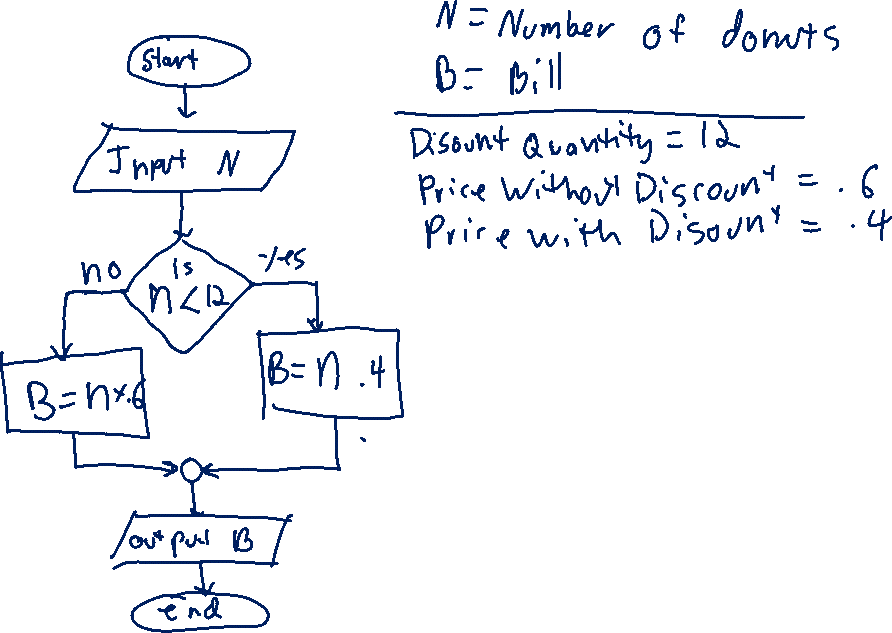 N = Number of donuts
B = Bill
Disount Quantity = 12
Price Without Discount = .6
Price with Disount = .4
Start
Input N
Is
n < 12
no
yes
B = n * .6
B = n .4
output B
end